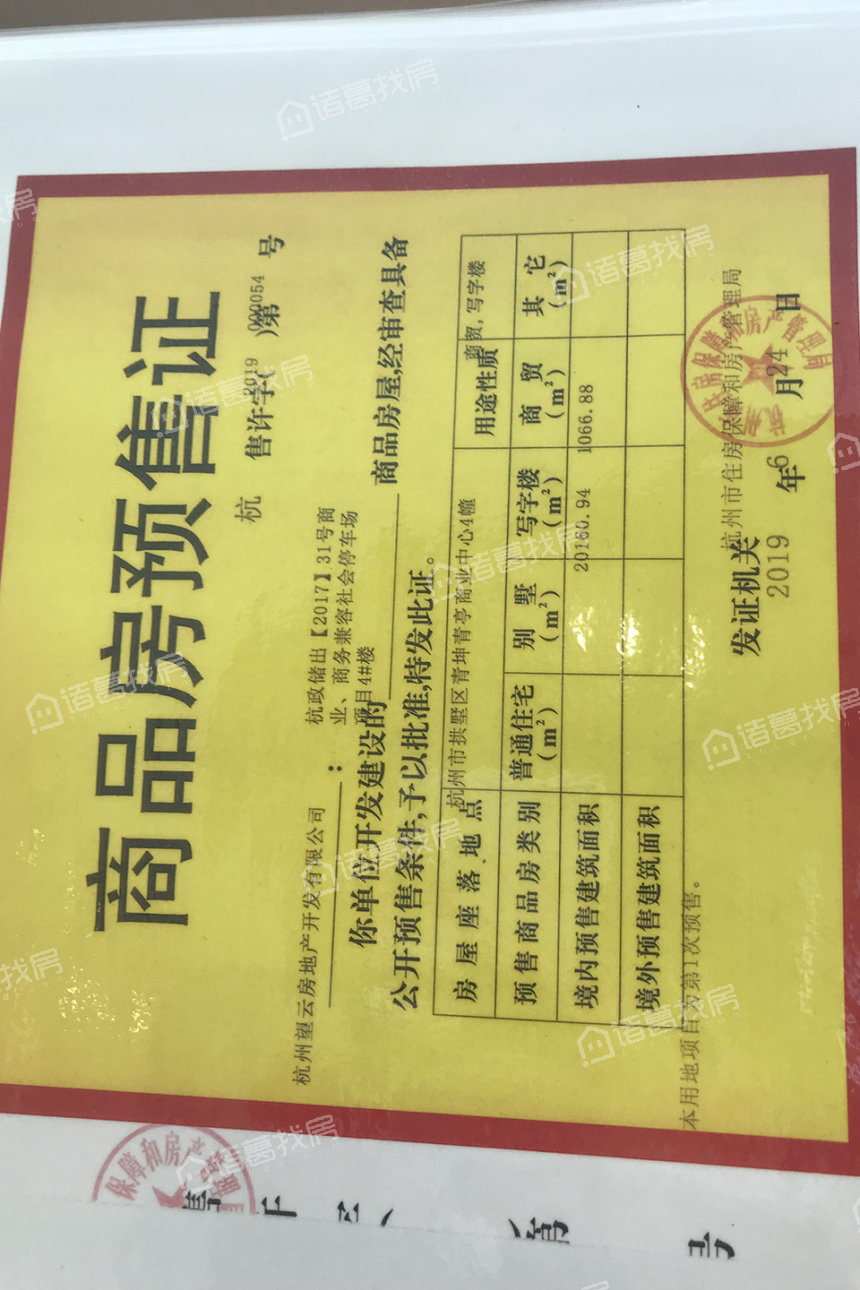 商品房预售证
杭 售许字(2019)第000054号
杭州望云房地产开发有限公司:
杭政储出【2017】31号商
业、商务兼容社会停车场
项目4#楼
你单位开发建设的 商品房屋,经审查具备
公开预售条件,予以批准,特发此证。
房屋座落地点 杭州市拱墅区青坤青亭商业中心4幢 用途性质 商贸,写字楼
预售商品房类别 普通住宅(m²) 别墅(m²) 写字楼(m²) 商贸(m²) 其它(m²)
境内预售建筑面积 20160.94 1066.88
境外预售建筑面积
本用地项目为第1次预售。
杭州市住房保障和房产管理局
发证机关
2019年6月24日
保障和房产管
号
诸葛找房